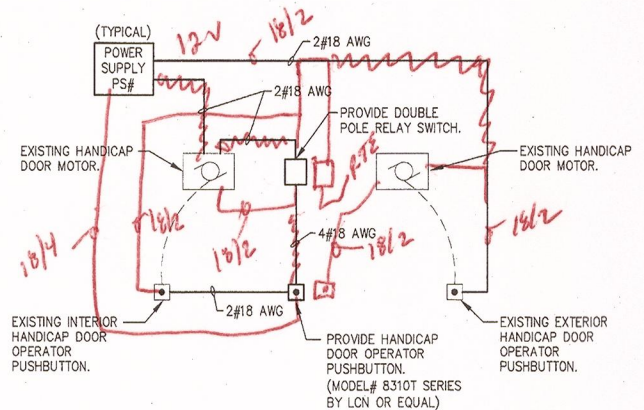 (TYPICAL)
POWER
SUPPLY
PS#
12V
18/2
2#18 AWG
2#18 AWG
PROVIDE DOUBLE
POLE RELAY SWITCH.
EXISTING HANDICAP
DOOR MOTOR.
R-TE
EXISTING HANDICAP
DOOR MOTOR.
18/4
18/2
18/2
4#18 AWG
18/2
18/2
2#18 AWG
EXISTING INTERIOR
HANDICAP DOOR
OPERATOR
PUSHBUTTON.
PROVIDE HANDICAP
DOOR OPERATOR
PUSHBUTTON.
(MODEL# 8310T SERIES
BY LCN OR EQUAL)
EXISTING EXTERIOR
HANDICAP DOOR
OPERATOR
PUSHBUTTON.